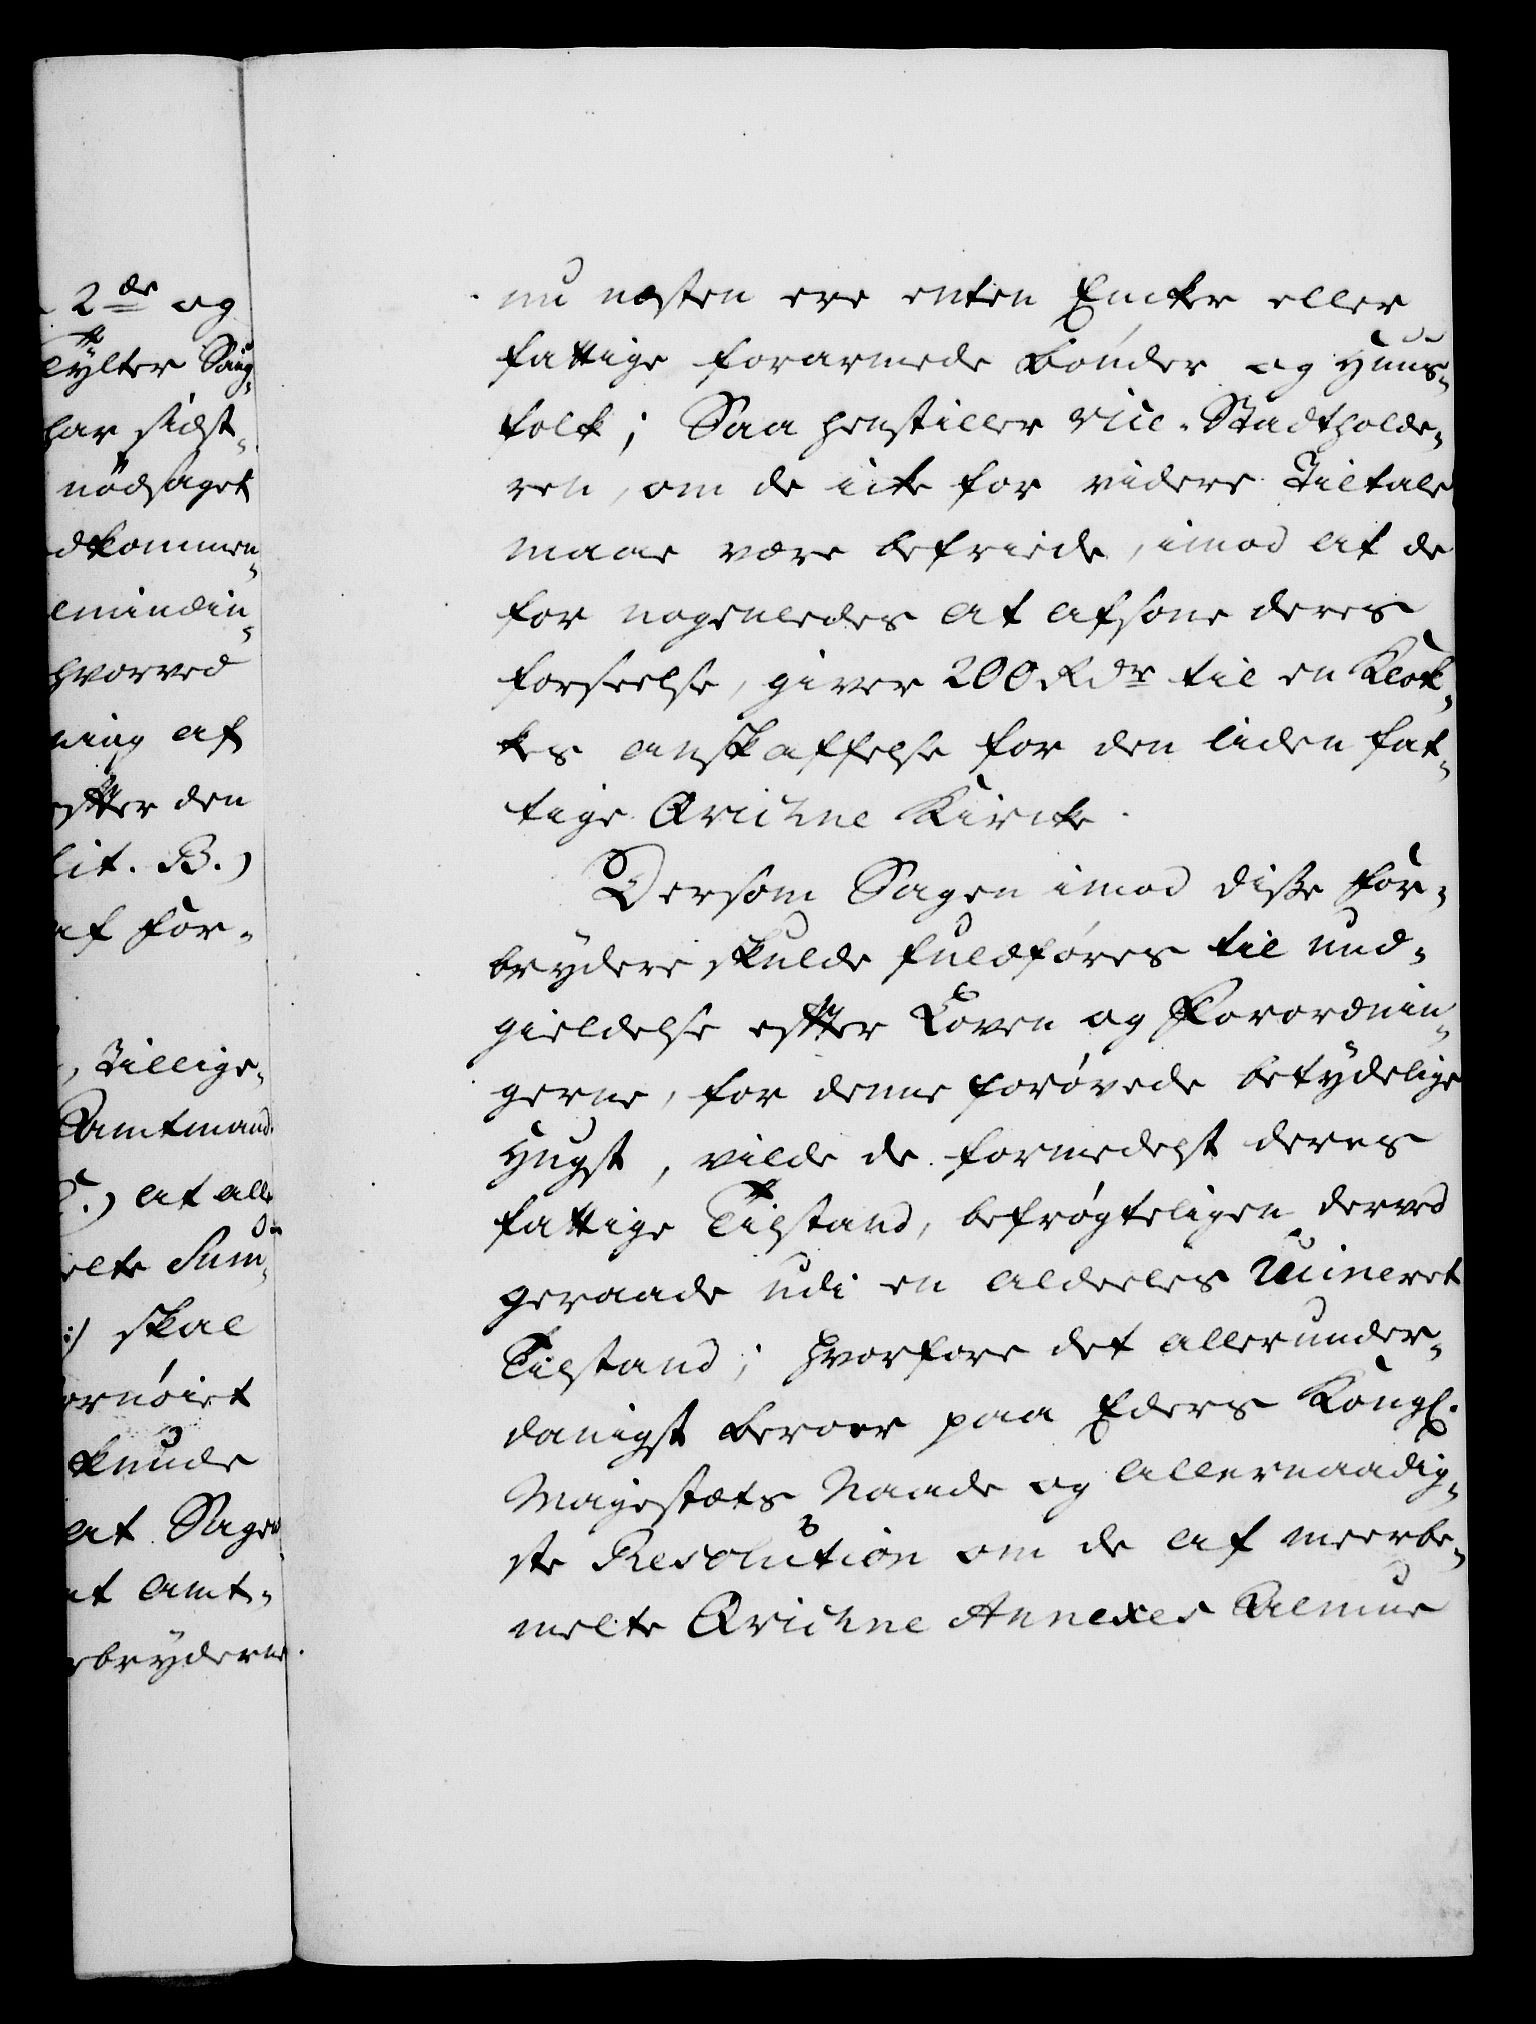 2de og
Tylter Saug-
har sidst-
nödsaget
dkommen-
emindin-
hvorved
ning af
efter den
Lit. B.)
af For-
, Tillige-
Amtmand
C.) at alle
elte Sum-
:/ skal
ornöiet
kunde
at Sagen
at Amt-
rbryderne.
nu næsten ere enten Encker eller
fattige forarmede Bönder og Huus-
folk; Saa henstiller Vice-Stadtholde-
ren, om de icke for videre Tiltale
maae være befriede, imod at de
for nogenledes at afsone deres
forseelse, giver 200 Rdr til en Klok-
kes anskaffelse for den liden fat-
tige Qvichne Kircke.
Dersom Sagen imod disse For-
brydere skulde fuldføres til und-
gieldelse efter Loven og Forordnin-
gerne, for denne forøvede betydelige
Hugst, vilde de formedelst deres
fattige Tilstand, befrøgteligen derved
geraade udi en aldeeles ruineret
Tilstand; hvorfore det allerunder-
danigst beroer paa Eders Kongl.
Majestæts Naade og Allernaadig-
ste Resolution om de af meerbe-
melte Qvichne Annexes Almue